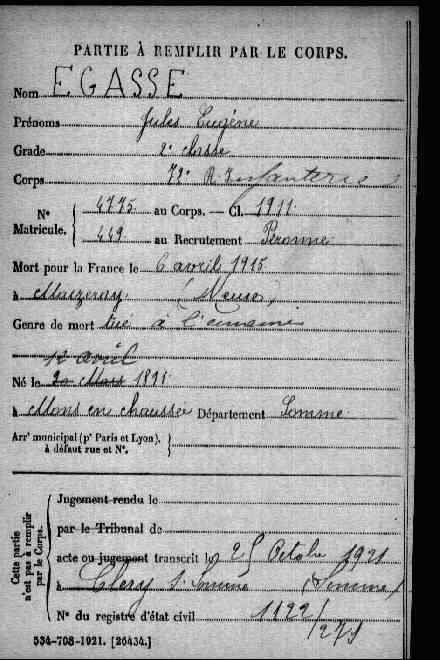 PARTIE À REMPLIR PAR LE CORPS.
Nom EGASSE
Prénoms Jules Eugène
Grade 2e classe
Corps 72e R. Infanterie
No Matricule. 4775 au Corps. — Cl. 1911
449 au Recrutement Péronne
Mort pour la France le 6 avril 1915
à Maizeray (Meuse)
Genre de mort tué à l'ennemi
12 avril
Né le 20 Mars 1891
à Mons en chaussée Département Somme
Arrt municipal (pr Paris et Lyon), à défaut rue et No.
Cette partie n'est pas à remplir par le Corps.
Jugement rendu le
par le Tribunal de
acte ou jugement transcrit le 25 Octobre 1921
à Clery s/ Somme (Somme)
No du registre d'état civil 1122/271
534-708-1921. [26434.]